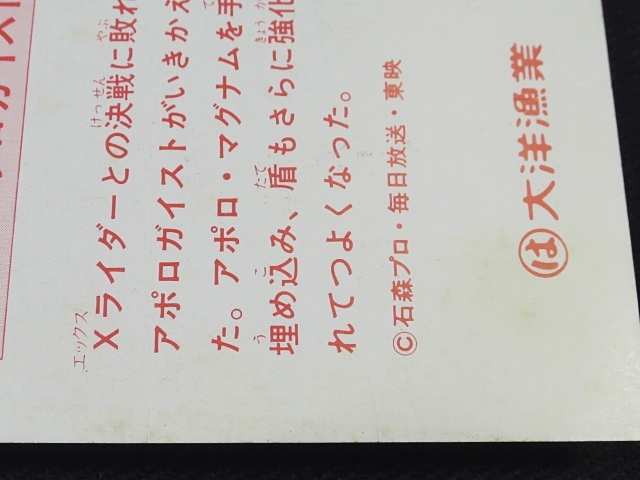 Xライダーとの決戦に敗れ
アポロガイストがいきかえ
た。アポロ・マグナムを手
埋め込み、盾もさらに強化
れてつよくなった。
©石森プロ・毎日放送・東映
は大洋漁業